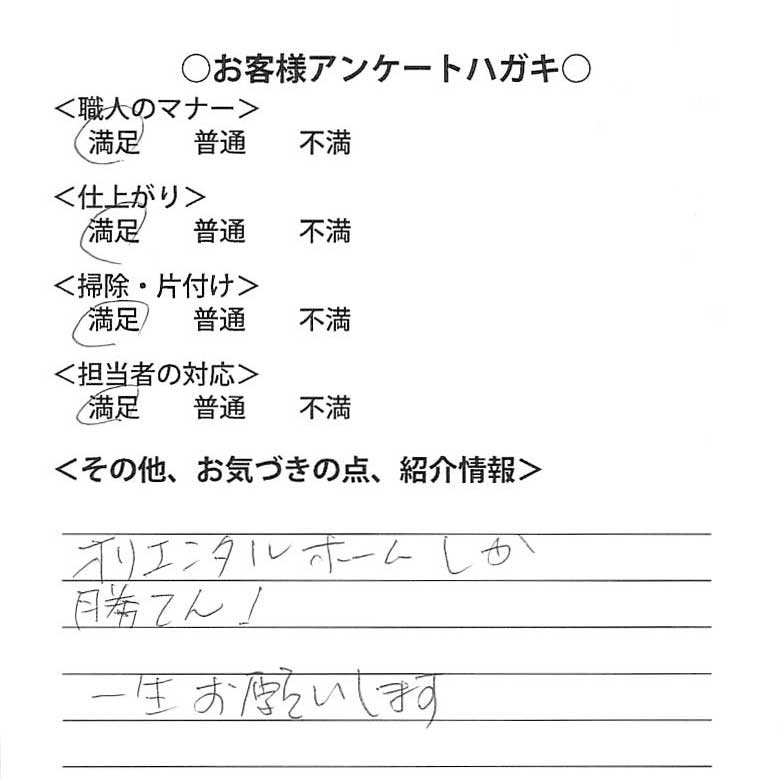 ○お客様アンケートハガキ○
＜職人のマナー＞
満足 普通 不満
＜仕上がり＞
満足 普通 不満
＜掃除・片付け＞
満足 普通 不満
＜担当者の対応＞
満足 普通 不満
＜その他、お気づきの点、紹介情報＞
オリエンタルホームしか
勝てん！
一生お願いします